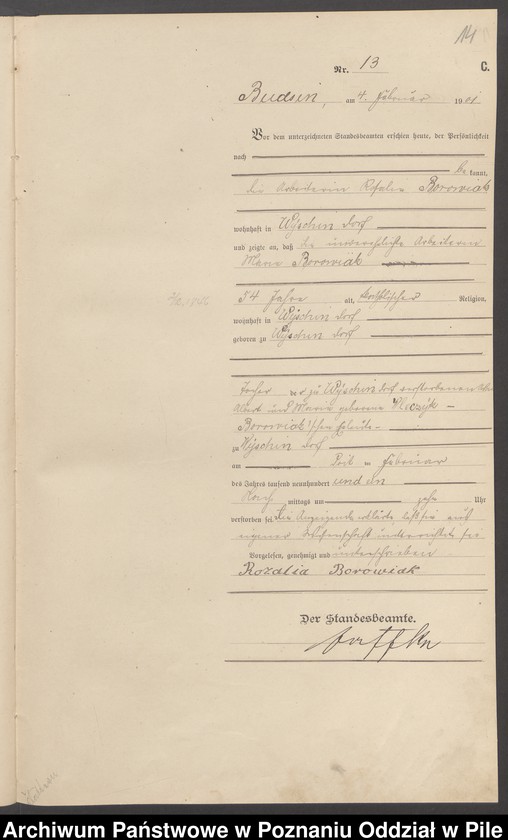 14
Nr. 13
C.
Budsin, am 4. Februar 1901
Vor dem unterzeichneten Standesbeamten erschien heute, der Persönlichkeit
nach
be kannt,
die Arbeiterin Rosalie Borowiak
wohnhaft in Wÿschin Dorf
und zeigte an, daß die unverehelichte Arbeiterin
Marie Borowiak
54 Jahre alt, katholischer Religion,
wohnhaft in Wÿschin Dorf
geboren zu Wÿschin Dorf
Tochter der zu Wÿschin Dorf verstorbenen
und Maria geborene
Borowiak'schen Eheleute
zu Wÿschin Dorf
am Februar
des Jahres tausend neunhundert und ein
Nach mittags um zehn Uhr
verstorben sei. Die Anzeigende erklärte, daß sie aus
eigener Wissenschaft unterrichtet sei
Vorgelesen, genehmigt und unterschrieben
Rozalia Borowiak
Der Standesbeamte.
Archiwum Państwowe w Poznaniu Oddział w Pile